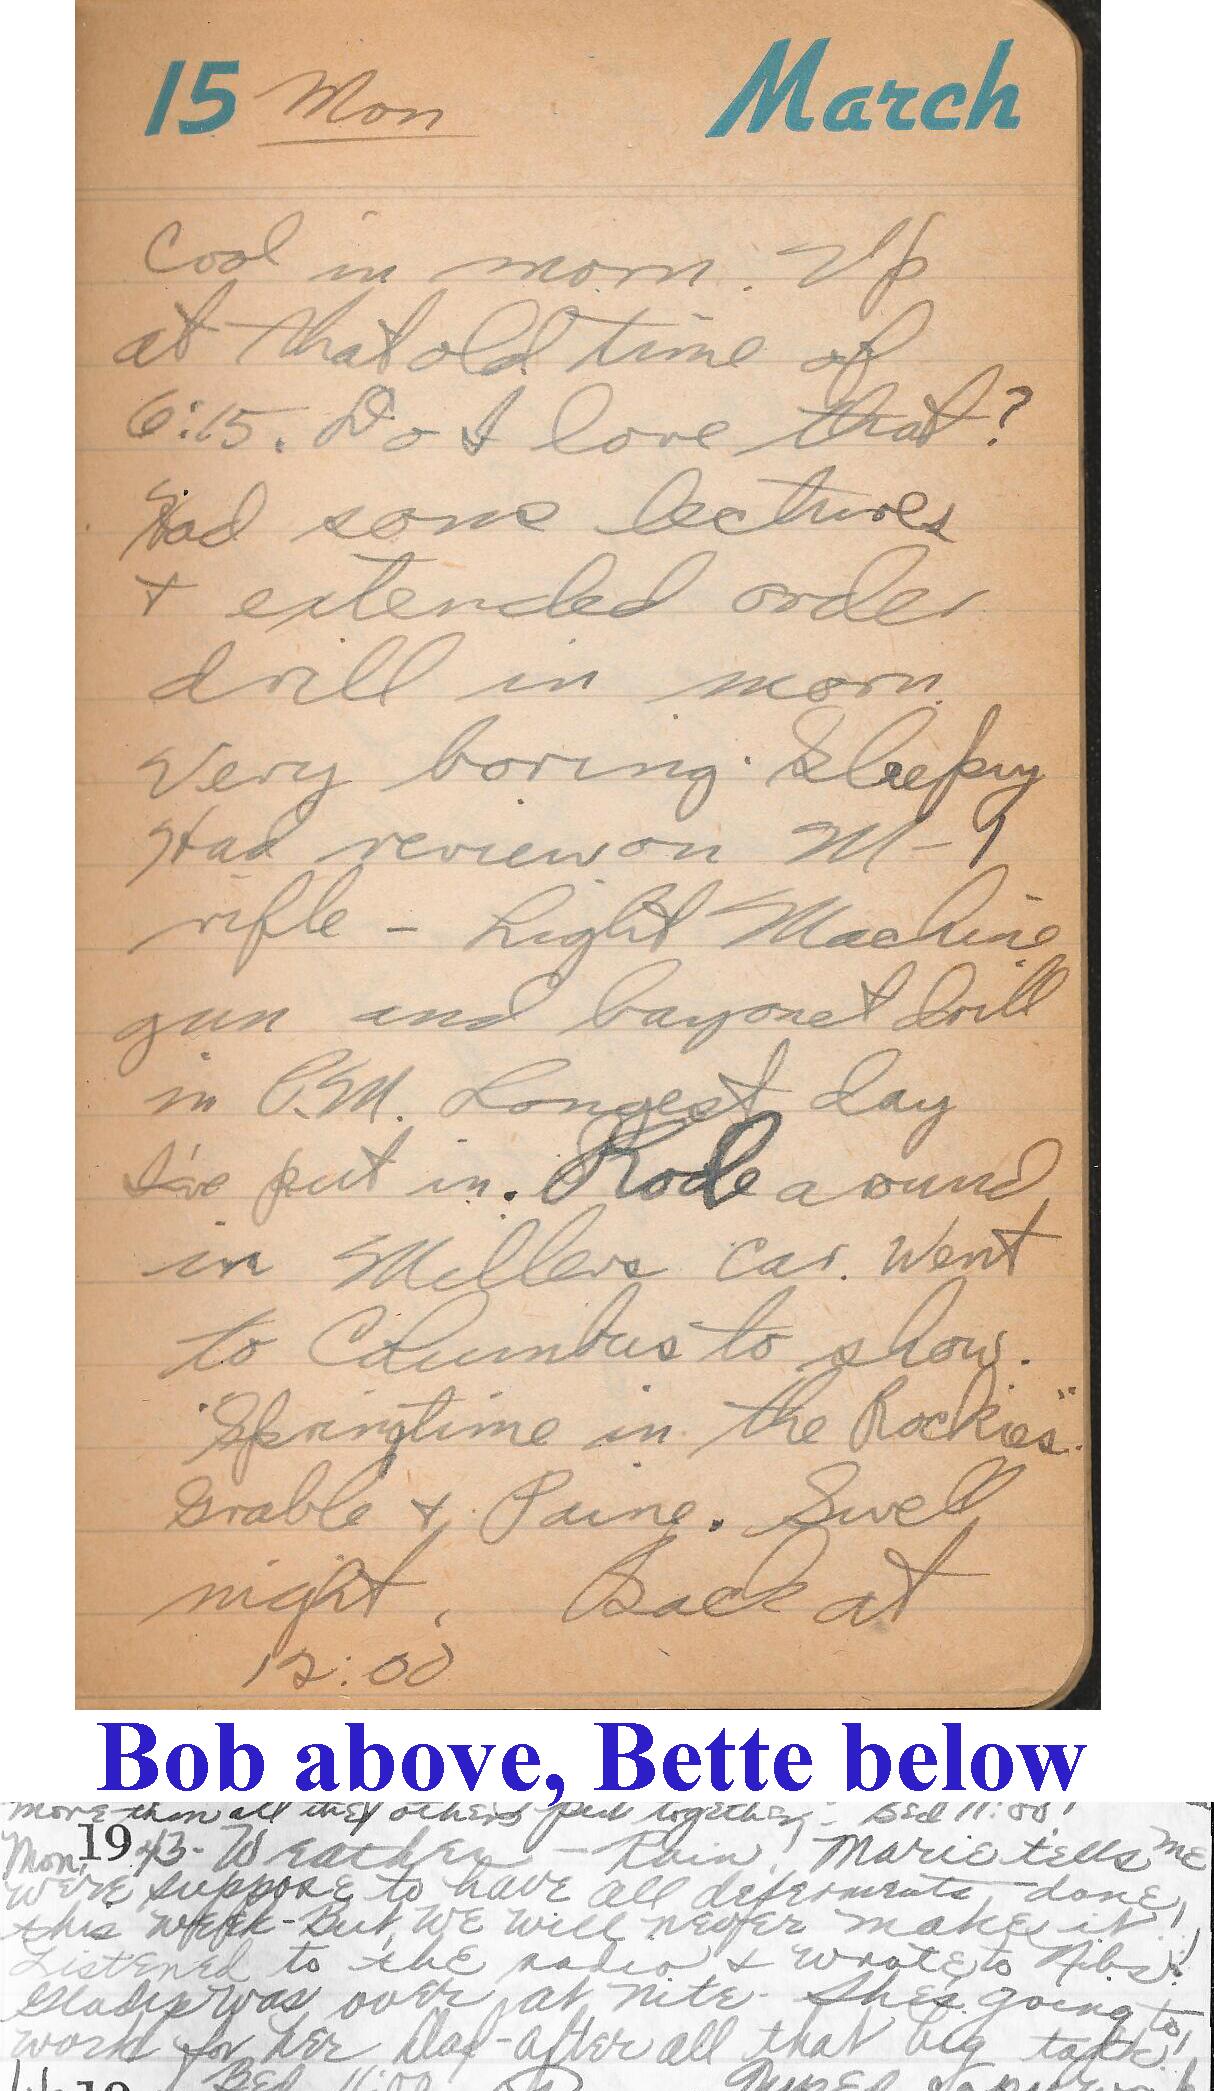 15 Mon March
Cool in morn. Up
at that old time of
6:15. Do I love that?
Had some lectures
+ extended order
drill in morn.
Very boring. Sleepy
Had review on M-1
rifle - Light Machine
gun and bayonet drill
in P.M. Longest day
I've put in. Rode around
in Millers car. Went
to Columbus to show.
"Springtime in the Rockies".
Grable + Paine. Swell
night. Back at
12:00
Bob above, Bette below
more than all the others put together, Bed 11:00!
Mon. 1943 - Weather - Rain! Marie tells me
we're suppose to have all deferments done
this week - But, we will never make it!
Listened to the radio & wrote to Nibs!
Gladys was over at nite - She's going to
work for her Dad - after all that big talk!
Bed 11:00
19